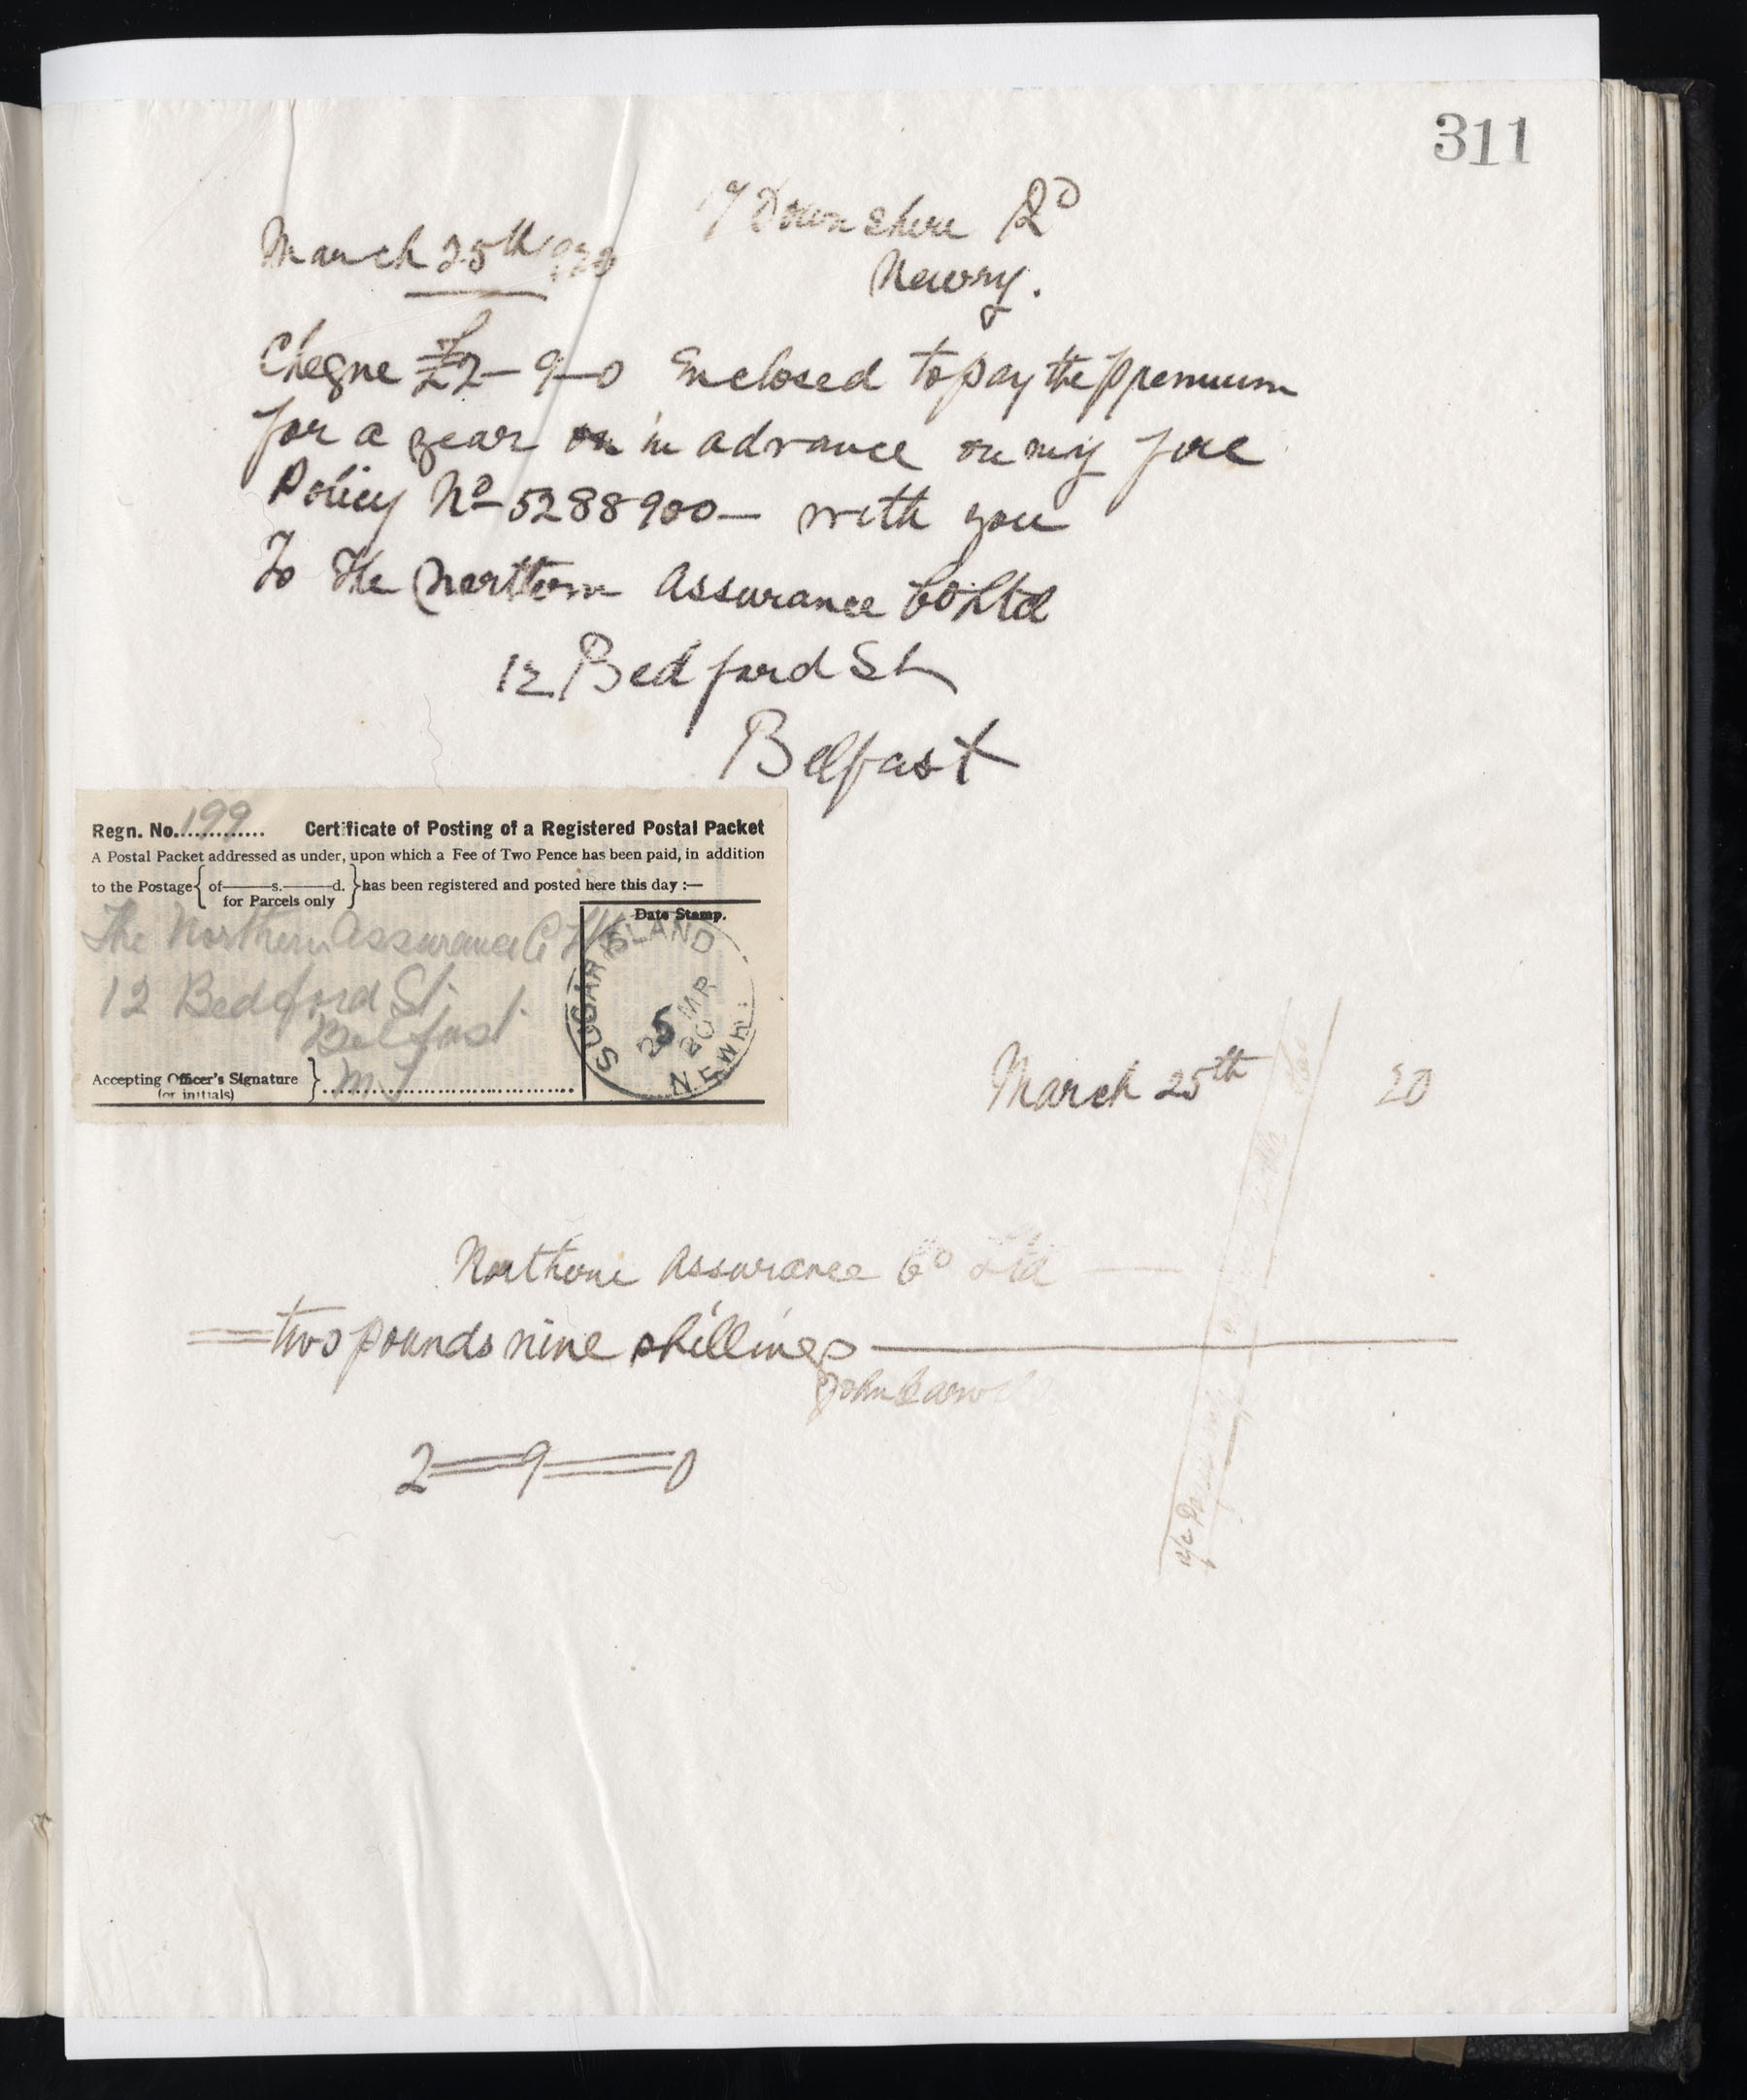 311
17 Downshire Rd
March 25th 1920
Newry.
Cheque £2-9-0 Enclosed to pay the premium
for a year in advance on my fire
Policy No 5288900 - with you
To The Northern Assurance Co Ltd
12 Bedford St
Belfast
Regn. No. 199 Certificate of Posting of a Registered Postal Packet
A Postal Packet addressed as under, upon which a Fee of Two Pence has been paid, in addition
to the Postage { of ——s.——d. for Parcels only } has been registered and posted here this day :—
Date Stamp.
The Northern Assurance Co Ltd
12 Bedford St.
Belfast
SUGAR ISLAND
25 MR 20
NEWRY
Accepting Officer's Signature (or initials) } M.J
March 25th 20
Northern Assurance Co Ltd —
= two pounds nine shillings —
John
2 = 9 = 0